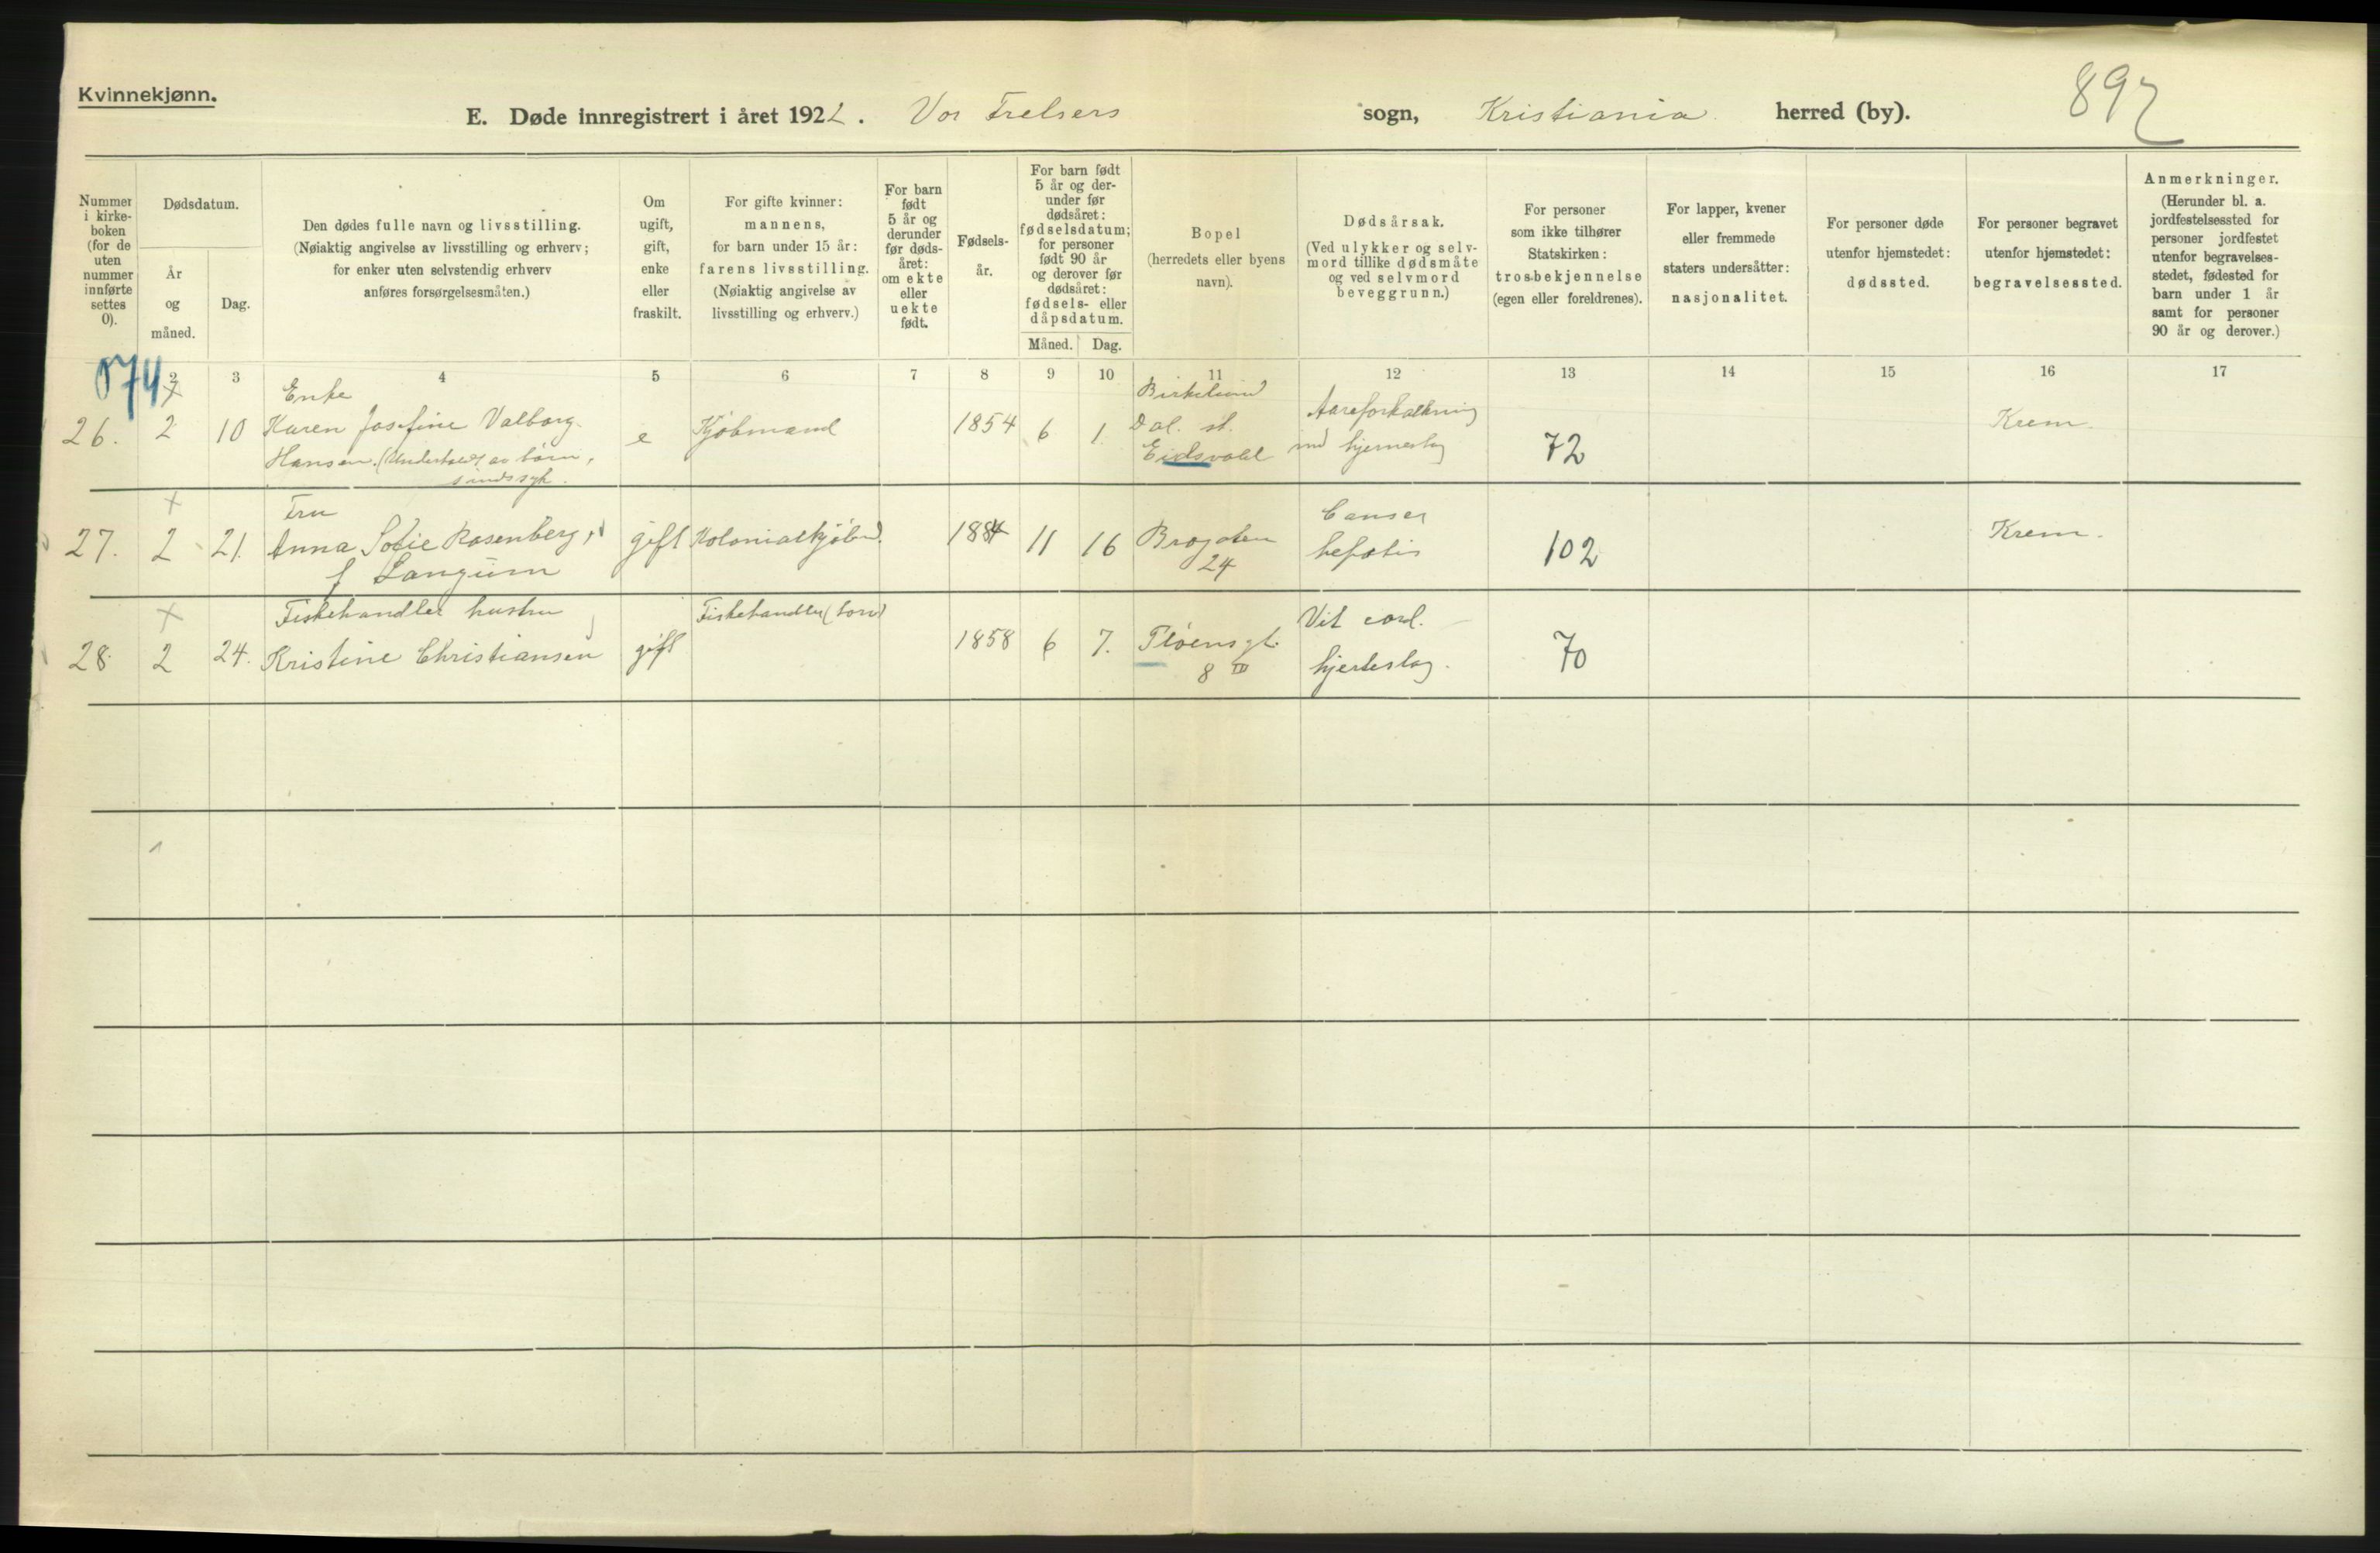 Kvinnekjønn.
E. Døde innregistrert i året 1922. Vor Frelsers sogn, Kristiania herred (by).
897
Nummer i kirkeboken (for de uten nummer innførte settes 0).
Dødsdatum.
År og måned.
Dag.
Den dødes fulle navn og livsstilling.
(Nøiaktig angivelse av livsstilling og erhverv;
for enker uten selvstendig erhverv
anføres forsørgelsesmåten.)
Om
ugift,
gift,
enke
eller
fraskilt.
For gifte kvinner:
mannens,
for barn under 15 år:
farens livsstilling.
(Nøiaktig angivelse av
livsstilling og erhverv.)
For barn
født
5 år og
derunder
før døds-
året:
om ekte
eller
uekte
født.
Fødsels-
år.
For barn født
5 år og der-
under før
dødsåret:
fødselsdatum;
for personer
født 90 år
og derover før
dødsåret:
fødsels- eller
dåpsdatum.
Måned. Dag.
Bopel
(herredets eller byens
navn).
Dødsårsak.
(Ved ulykker og selv-
mord tillike dødsmåte
og ved selvmord
beveggrunn.)
For personer
som ikke tilhører
Statskirken:
trosbekjennelse
(egen eller foreldrenes).
For lapper, kvener
eller fremmede
staters undersåtter:
nasjonalitet.
For personer døde
utenfor hjemstedet:
dødssted.
For personer begravet
utenfor hjemstedet:
begravelsessted.
Anmerkninger.
(Herunder bl. a.
jordfestelsessted for
personer jordfestet
utenfor begravelses-
stedet, fødested for
barn under 1 år
samt for personer
90 år og derover.)
2 3 4 5 6 7 8 9 10 11 12 13 14 15 16 17
074
26. 2 10
Enke
Karen Josefine Valborg
Hansen. (Underholdt av børn,
sindssyk.
e
Kjøbmand
1854 6 1.
Birkelund
Dal. st.
Eidsvold
Aareforkalkning
med hjerneslag
72
Krem.
27. 2 21.
Fru
Anna Sofie Rosenberg,
f Langum
gift
Kolonialkjøbm.
1884 11 16
Brogaten
24
Cancer
hepatis
102
Krem.
28. 2 24.
Fiskehandler hustru
Kristine Christiansen
gift
Fiskehandler (torv)
1858 6 7.
Pløensgt.
8 III
Vit. cord.
hjerteslag.
70